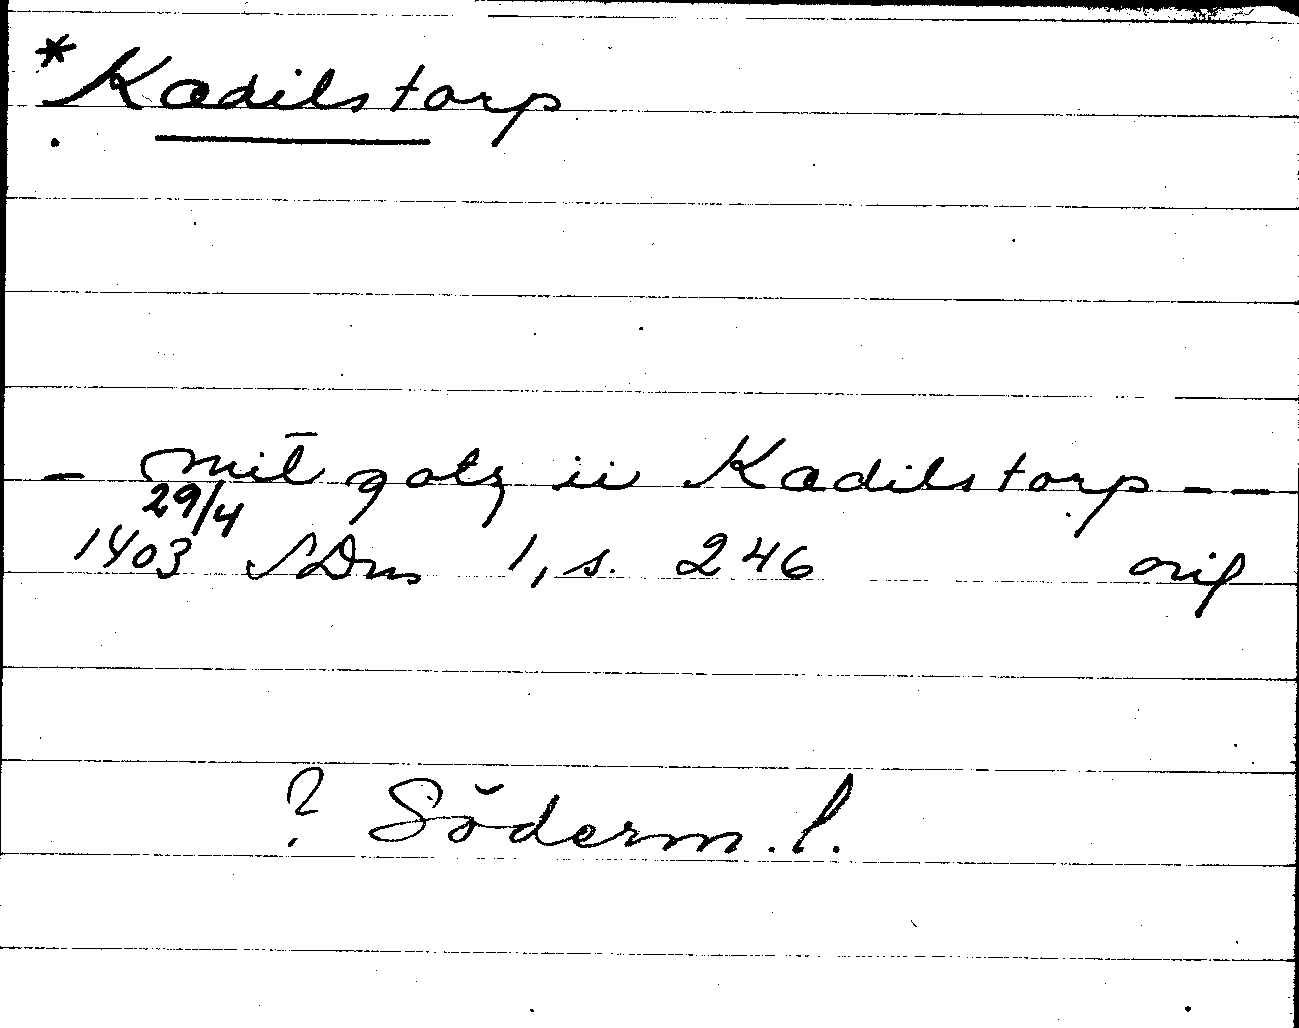 *Kadilstorp
- mit̄ gotz ii Kadilstorp - -
29/4
1403 SDns 1, s. 246 orig
? Söderm. l.